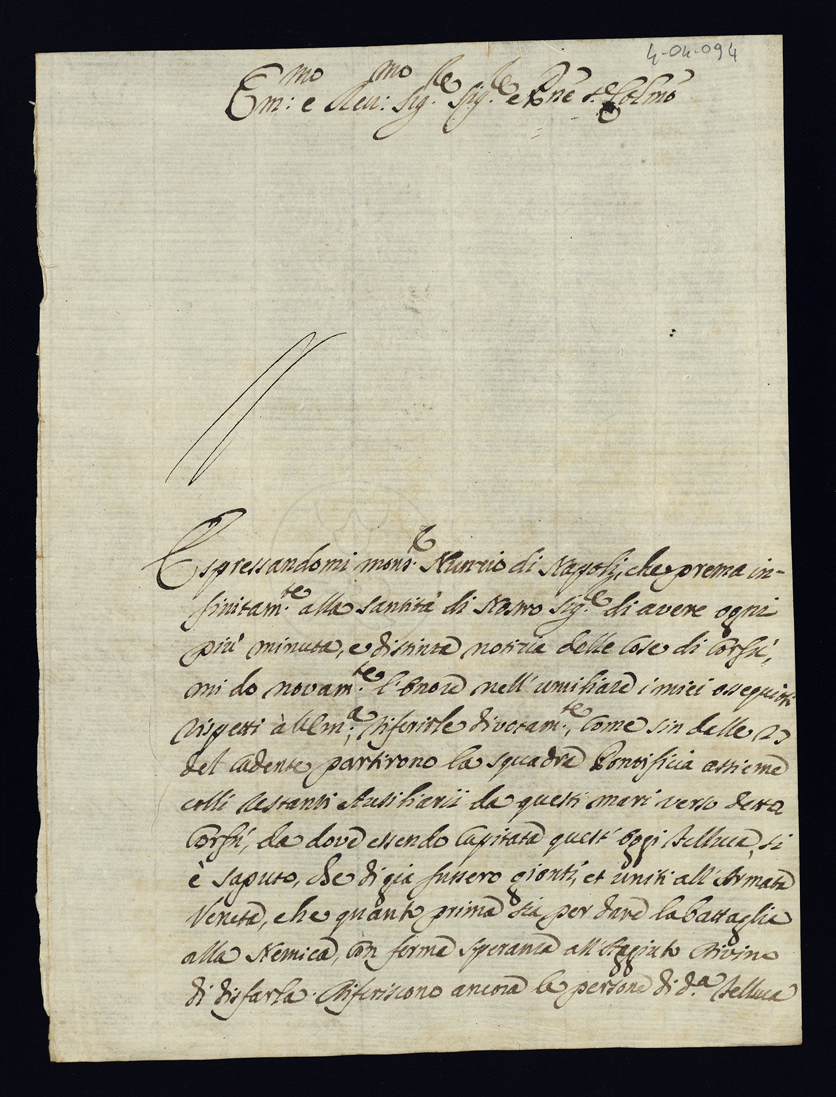 4-04-094
Em:mo e Rev:mo Sig.re Sig.re e Pñe Colmo
Espressandomi mons.re Nunzio di Napoli, che prema in-
finitam.te alla Santità di Nostro Sig.re di avere ogni
più minuta, e distinta notizia delle cose di Corfù,
mi do novam.te l'onore nell'umiliare i miei ossequiosi
rispetti à V.Em.a, riferirle divotam.te, come sin dalle 23
del cadente partirono la squadra Pontificia assieme
colli restanti Ausiliarii da questi mari verso detta
Corfù, da dove essendo capitata quest'oggi Felluca, si
è saputo, che di già fussero gionti, et uniti all'Armata
Veneta, e che quanto prima sia per dare la battaglia
alla Nemica, con ferma speranza all'Aggiuto Divino
di disfarla. Riferiscono ancora le persone di d.a Felluca